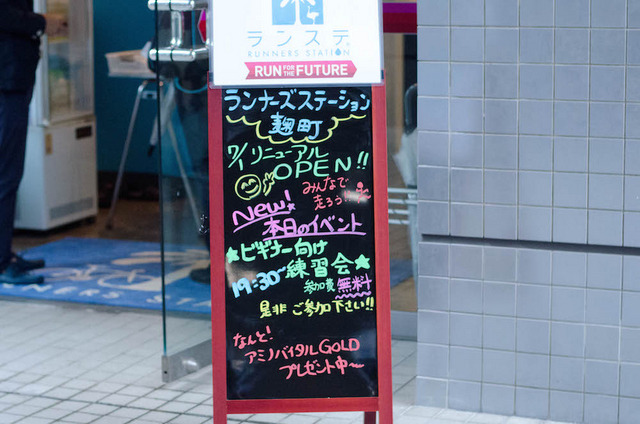 ランステ
RUNNERS STATION
RUN FOR THE FUTURE
ランナーズステーション
麹町
7/1 リニューアル
OPEN!!
みんなで
走ろう!!
New!
本日のイベント
★ビギナー向け
19:30~練習会★
参加費 無料
是非 ご参加下さい!!
なんと!
アミノバイタルGOLD
プレゼント中~